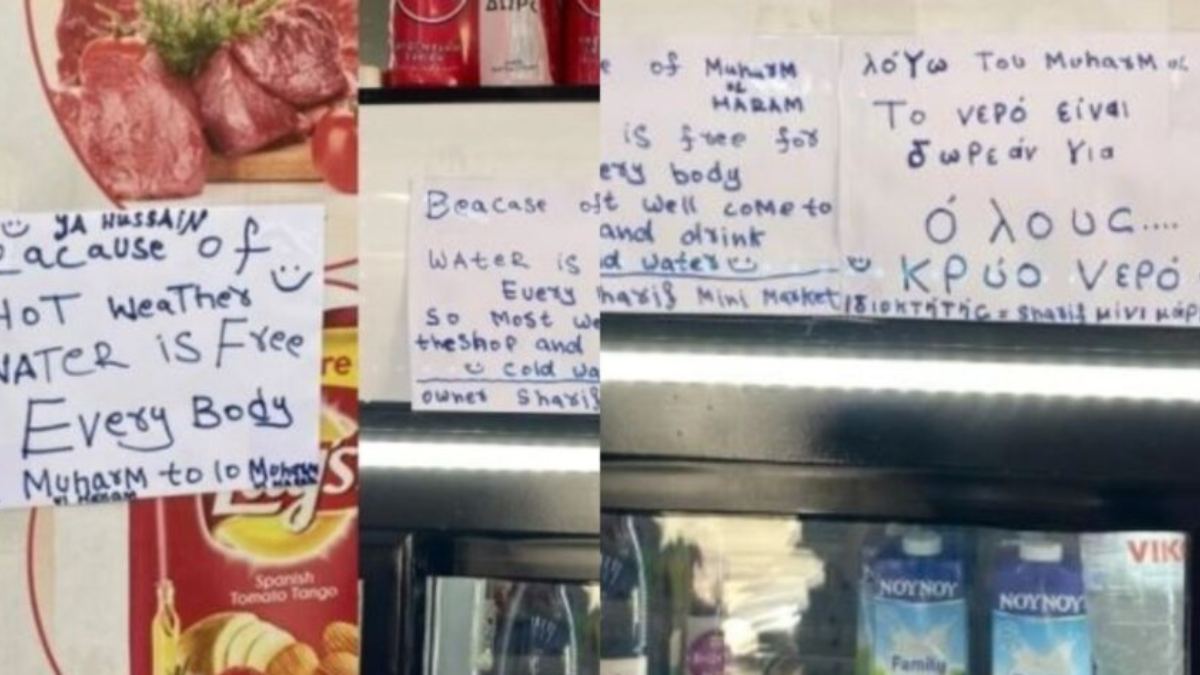 YA HUSSAIN
acause of
HOT Weather
WATER is Free
Every Body
Muharm to 10 Moharam
Lay's
Spanish
Tomato Tango
ΔΩΡΟ
Beacase of
WAter is
Every
So most we
theshop and
Cold wa
owner Sharif
e of Muharm
ul
HARAM
is free for
ery body
t well come to
and drink
d water
harif Mini Market
λόγω Του Muharm ul
Το νερό είναι
δωρεάν για
όλους....
κρύο νερό
ιδιοκτήτης = sharif μίνι μάρ
NOYNOY
Family
NOYNOY
VIK